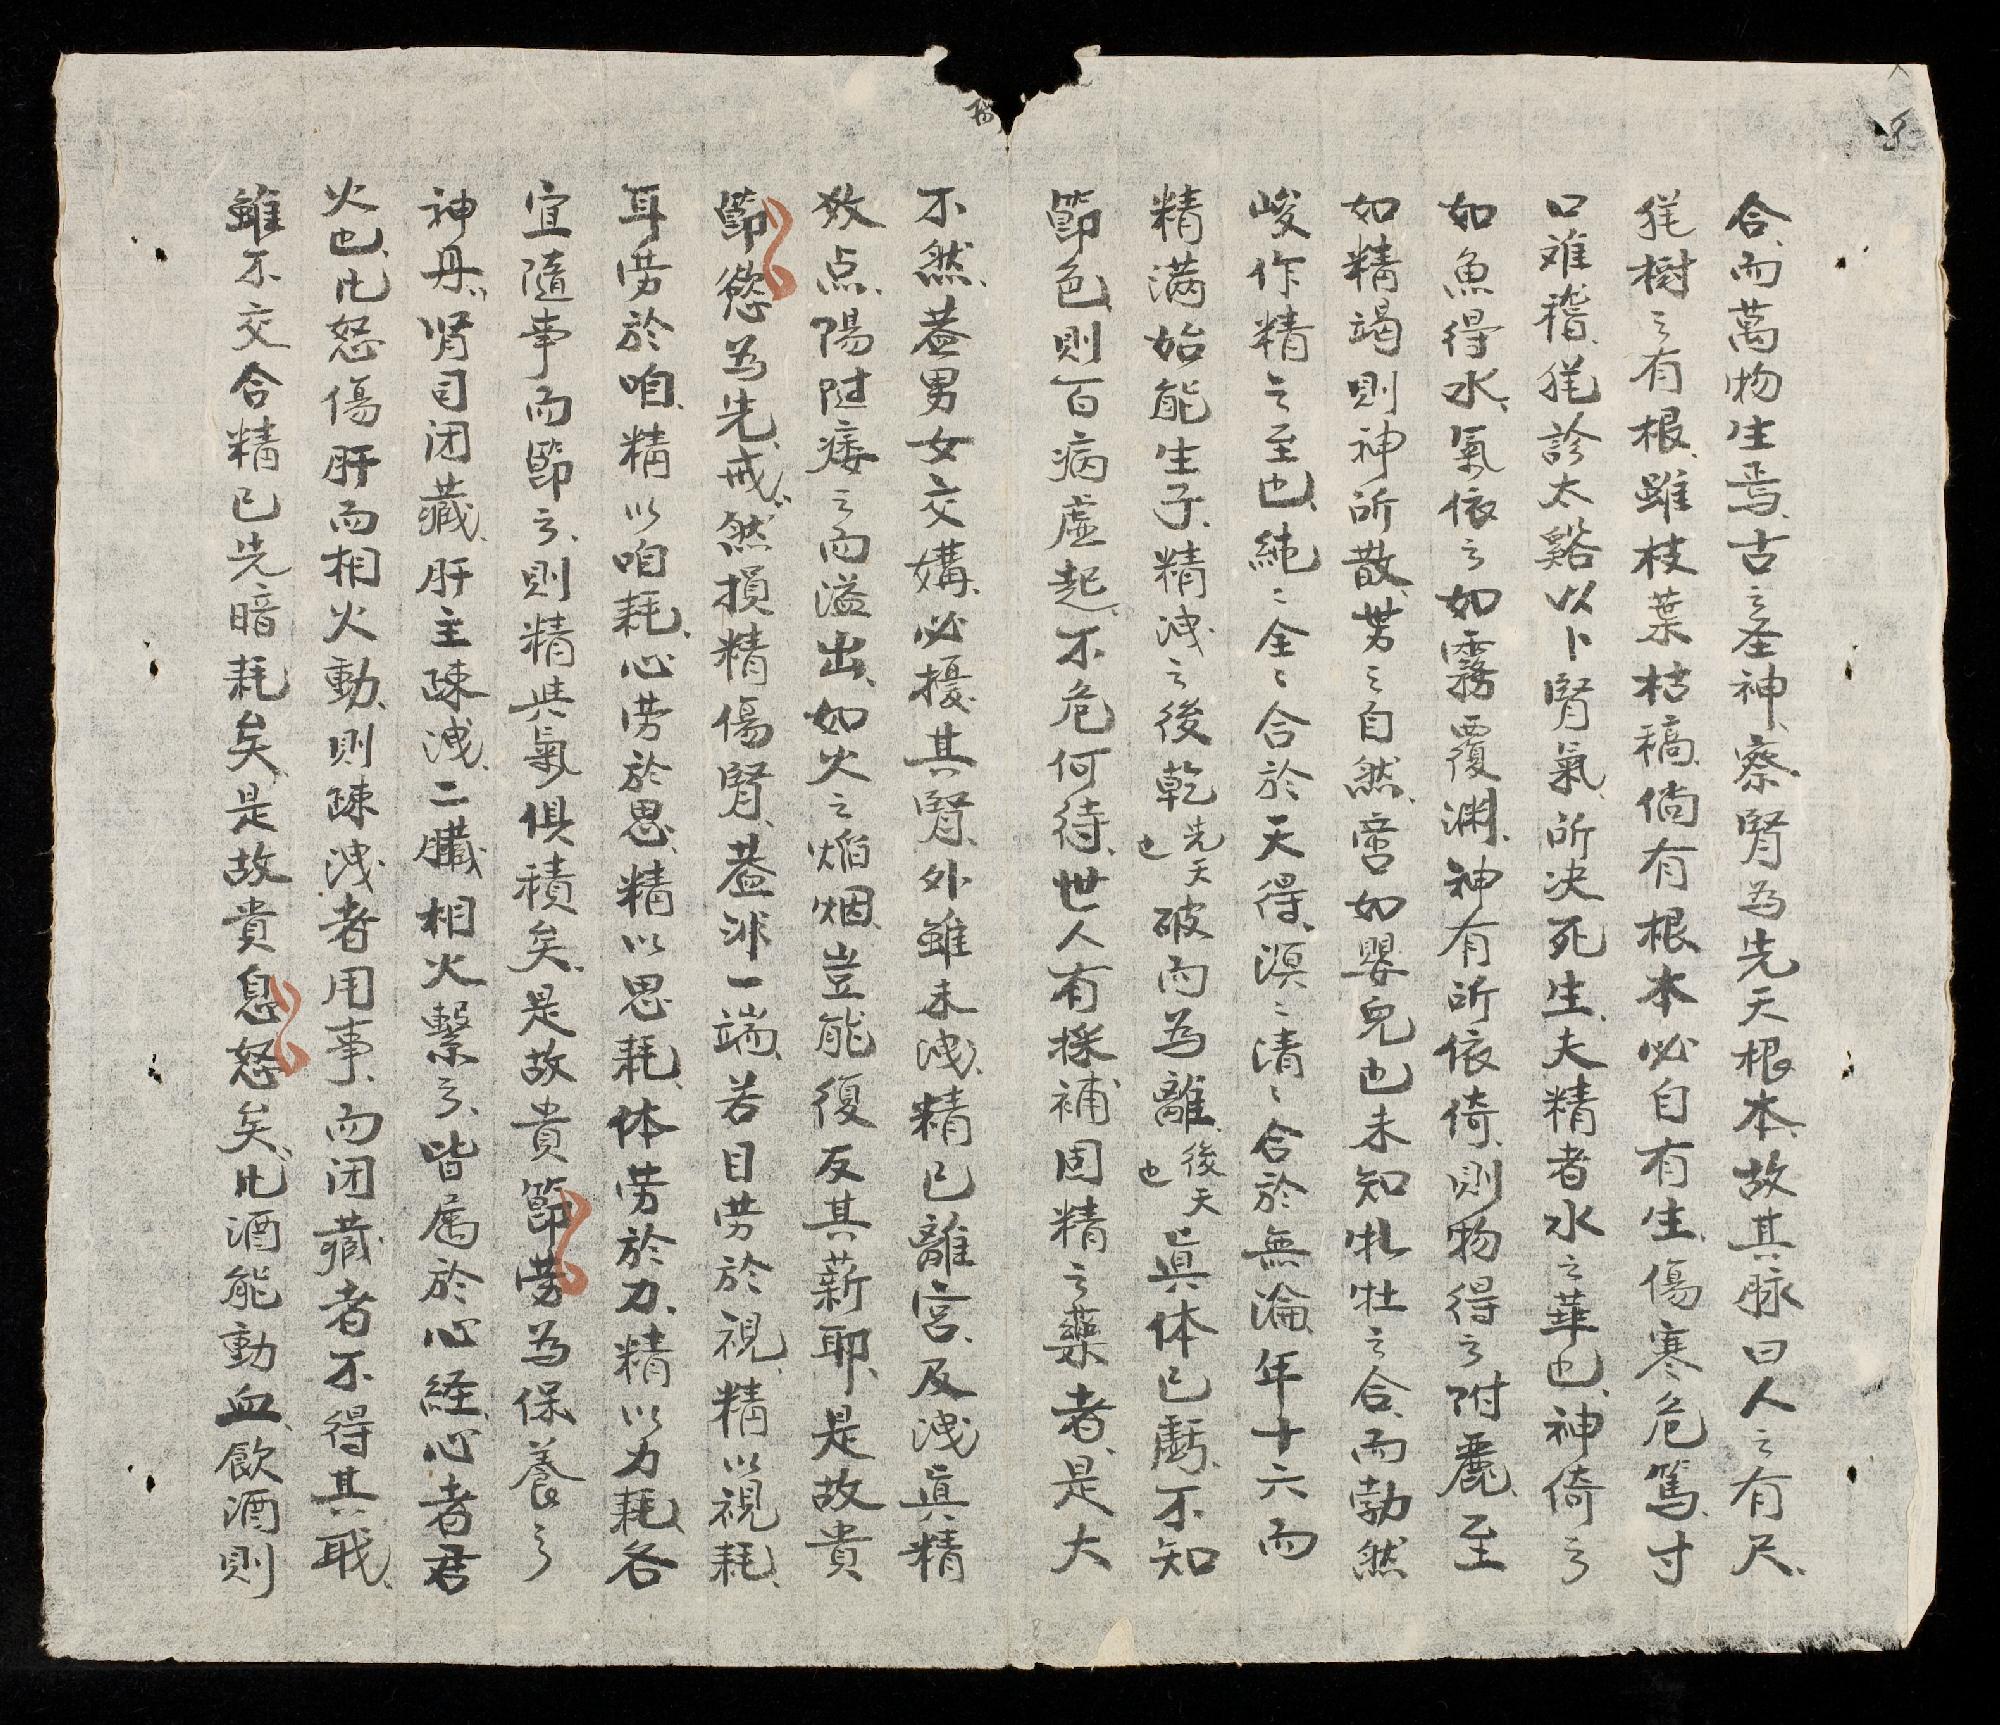 合、而萬物生焉、古之圣神、察腎為先天根本、故其脉曰人之有尺、
猶樹之有根、雖枝葉枯稿、倘有根本必自有生、傷寒危篤、寸
口难稽、猶診太谿以卜腎氣、所决死生、夫精者水之華也、神倚之
如魚得水、氣依之如霧覆渊、神有所依倚、則物得之附麗、至
如精竭則神所散、男之自然、啻如嬰兒也未知牝牡之合、而勃然
峻作精之至也、純〻全〻合於天得、溟〻清〻合於無淪、年十六而
精满始能生子、精洩之後乾先天也破而為離、後天也真体已虧、不知
節色、則百病虚起、不危何待、世人有採補固精之藥者、是大
不然、蓋男女交媾、必擾其腎、外雖未洩、精已離宫、及洩真精
数点、陽随痿之而溢出、如火之焰烟、豈能復反其薪耶、是故貴
節慾為先、戒、然損精傷腎、蓋非一端、若目劳於視、精以視耗、
耳劳於咱、精以咱耗、心劳於思、精以思耗、体劳於力、精以力耗、各
宜隨事而節之、則精與氣俱積矣、是故貴節劳為保養之
神丹、肾司闭藏、肝主踈洩、二臟相火繫之、皆属於心経、心者君
火也、此怒傷肝而相火動、則踈洩者用事、而闭藏者不得其职、
雖不交合精已先暗耗矣、是故貴息怒矣、此酒能動血、飲酒則